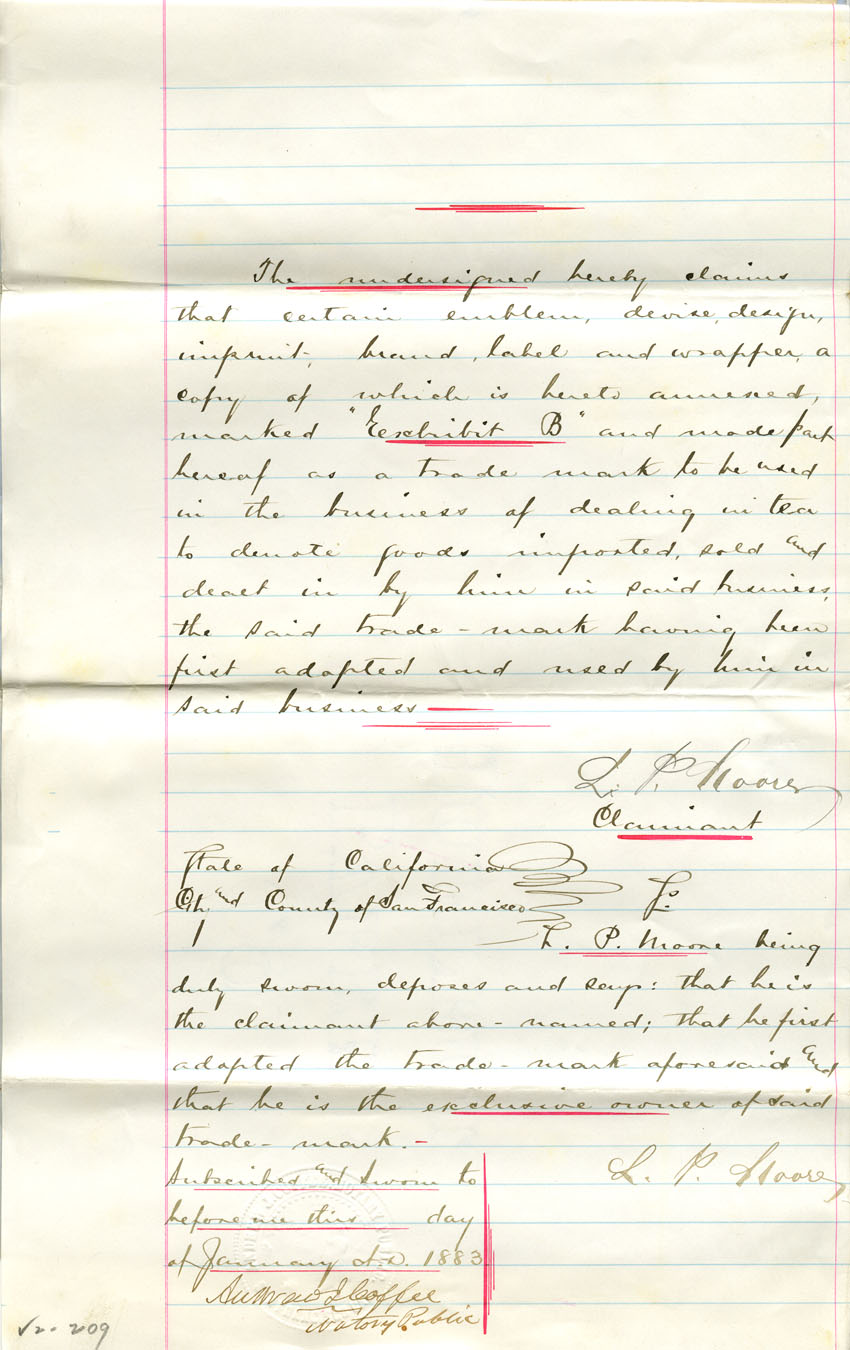 The undersigned hereby claims
that certain emblem, devise, design,
imprint, brand, label and wrapper, a
copy of which is hereto annexed,
marked "Exhibit B" and made part
hereof as a trade mark to be used
in the business of dealing in tea
to denote goods imported, sold and
dealt in by him in said business,
the said trade-mark having been
first adopted and used by him in
said business
L. P. Moore
Claimant
State of California
City and County of San Francisco ss.
L. P. Moore being
duly sworn, deposes and says: that he is
the claimant above-named; that he first
adopted the trade-mark aforesaid and
that he is the exclusive owner of said
trade-mark.-
L. P. Moore
Subscribed and Sworn to
before me this day
of January A.D. 1883
Andrew J. Coffee
Notary Public
V2-209